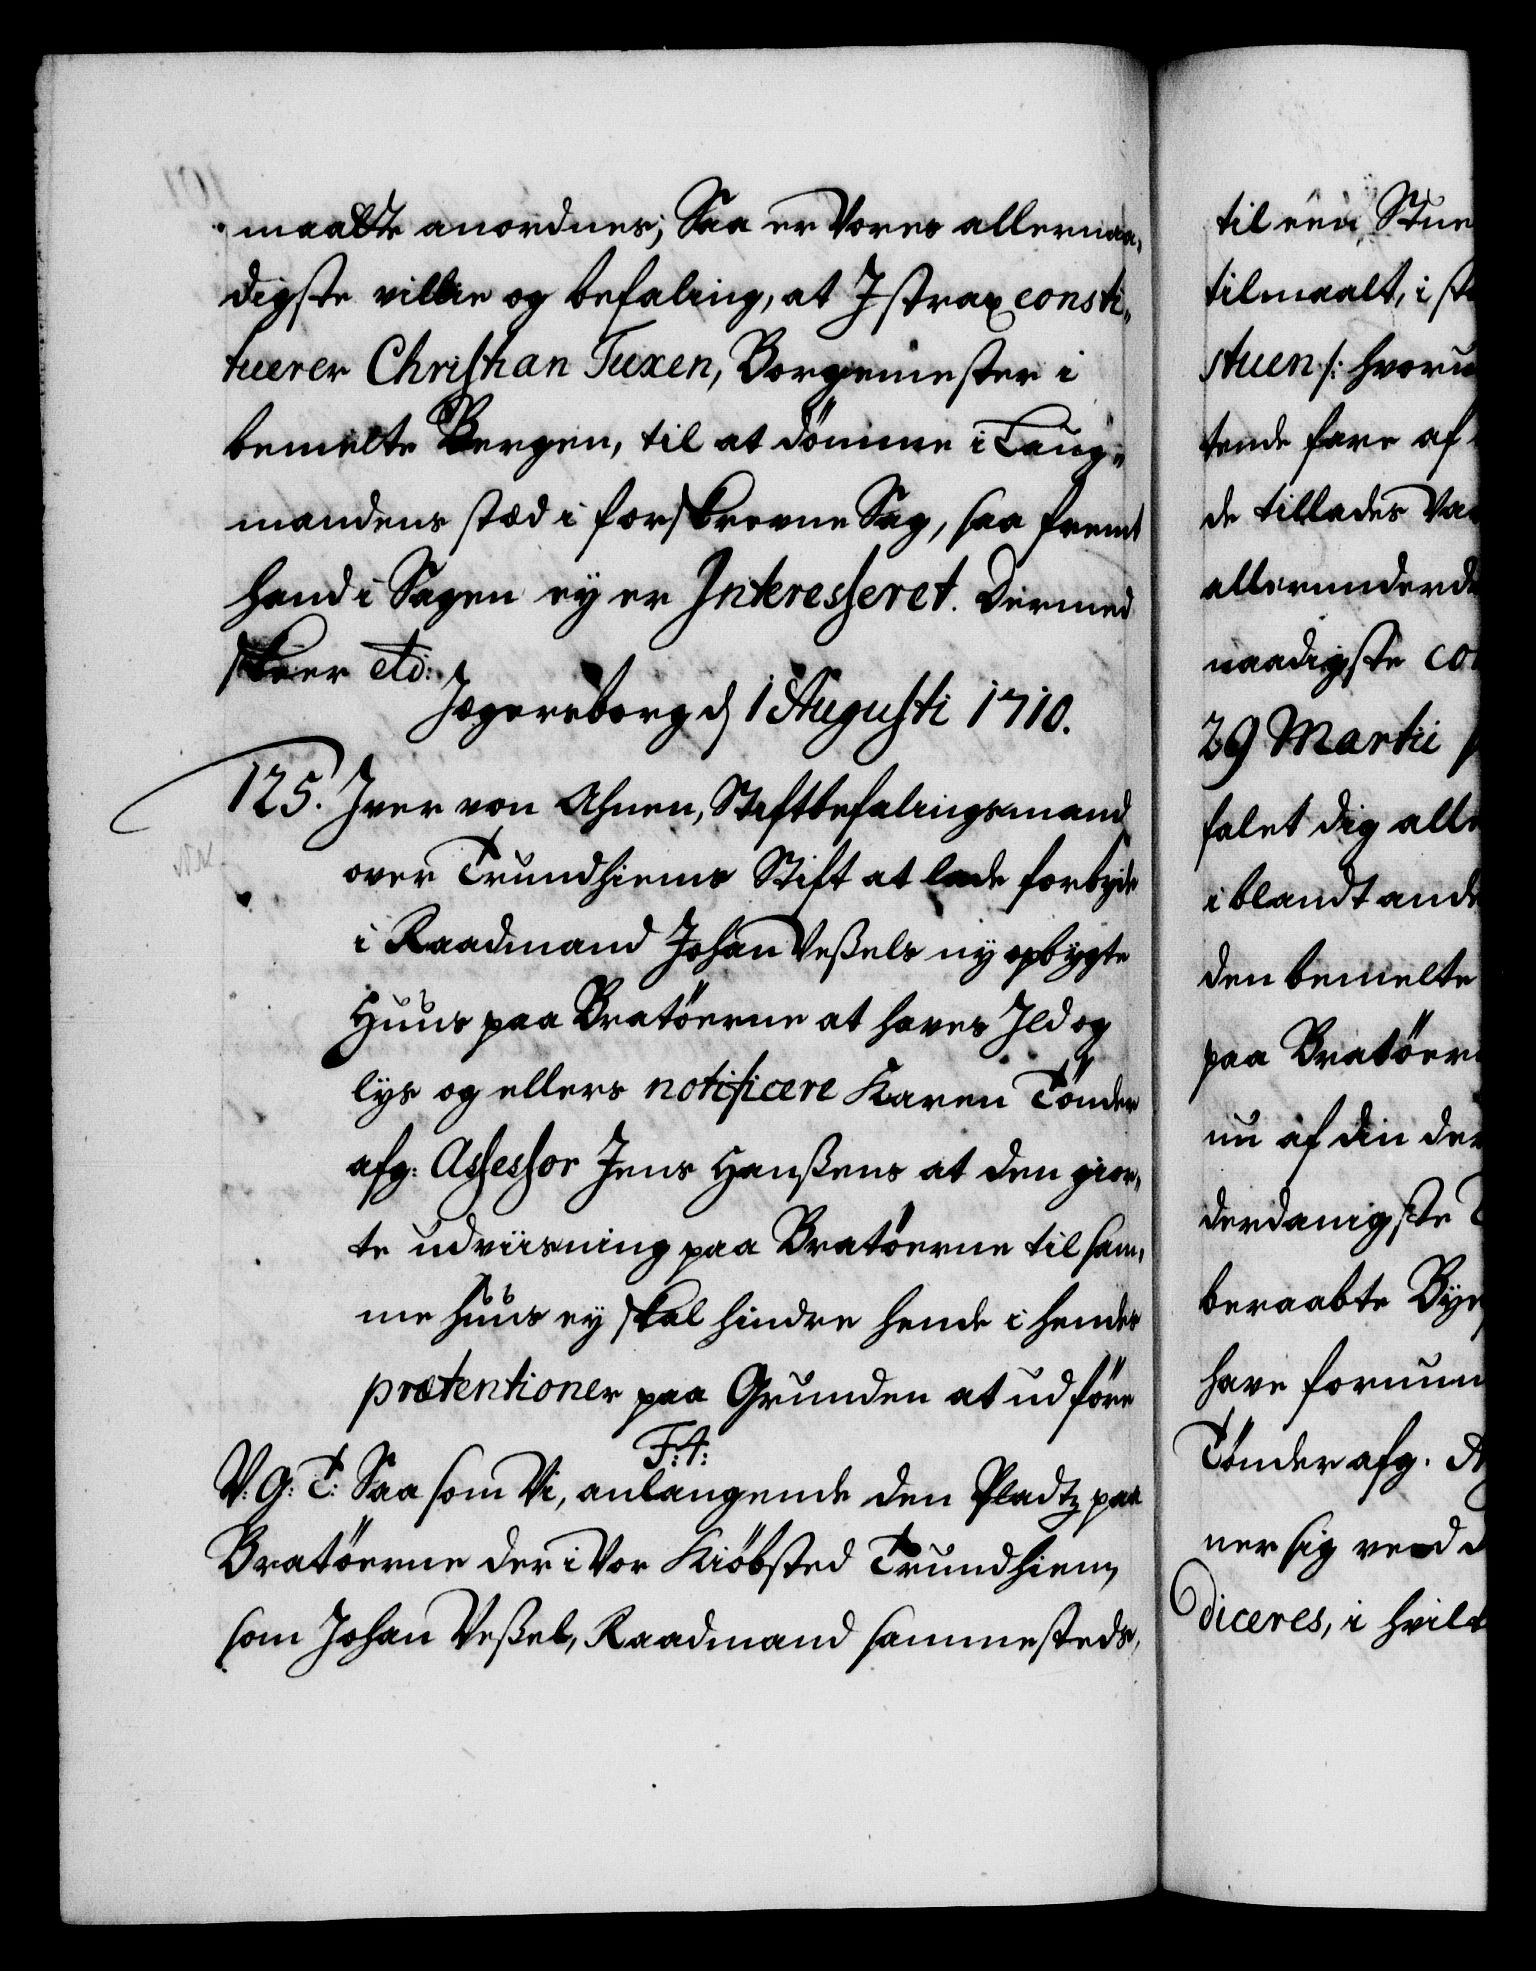 maatte anordnes; Saa er Vores allernaa„
digste villie og befaling, at I strax consti„
tuerer Christian Tuxen, Borgemester i
bemelte Bergen, til at dömme i Laug„
mandens stæd i forskrevne Sag, saa fremt
hand i Sagen ey er Interesseret. Dermed
skeer etc:
Jegersborg d 1 Augusti 1710.
125. Iver von Ahnen, Stiftbefalingsmand
over Trundhiems Stift at lade forbyde
i Raadmand Johan Veßels ny opbygte
Huus paa Bratöerne at haves Ild og
lys og ellers notificere Karen Tönder
afg: Assessor Jens Hanßens at den gior„
te udviisning paa Bratöerne til sam„
me huus ey skal hindre hende i hendes
prætentioner paa Grunden at udföre
F: 4:
V: G: T: Saa som Vi, anlangende den Pladtz paa
Bratöerne der i Vor Kiöbsted Trundhiem,
som Johan Veßel, Raadmand sammesteds,
til een Stue
tilmaalt, i
stuen /: hvoru
tende fare af
de tillades
allerunderd
naadigste
29 Martii
falet dig alle
i blandt ande
den bemelte
paa Bratöer
nu af din
derdanigste
beraabte Bye
have fornum
Tönder afg.
ner sig ved
diceres, i hvilc